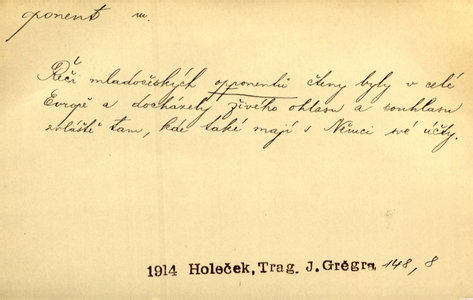 oponent m.
Řeči mladočeských opponentů čteny byly v celé
Evropě a docházely živého ohlasu a souhlasu
zvláště tam, kde také mají s Němci své účty.
1914 Holeček, Trag. J. Grégra 148, 8